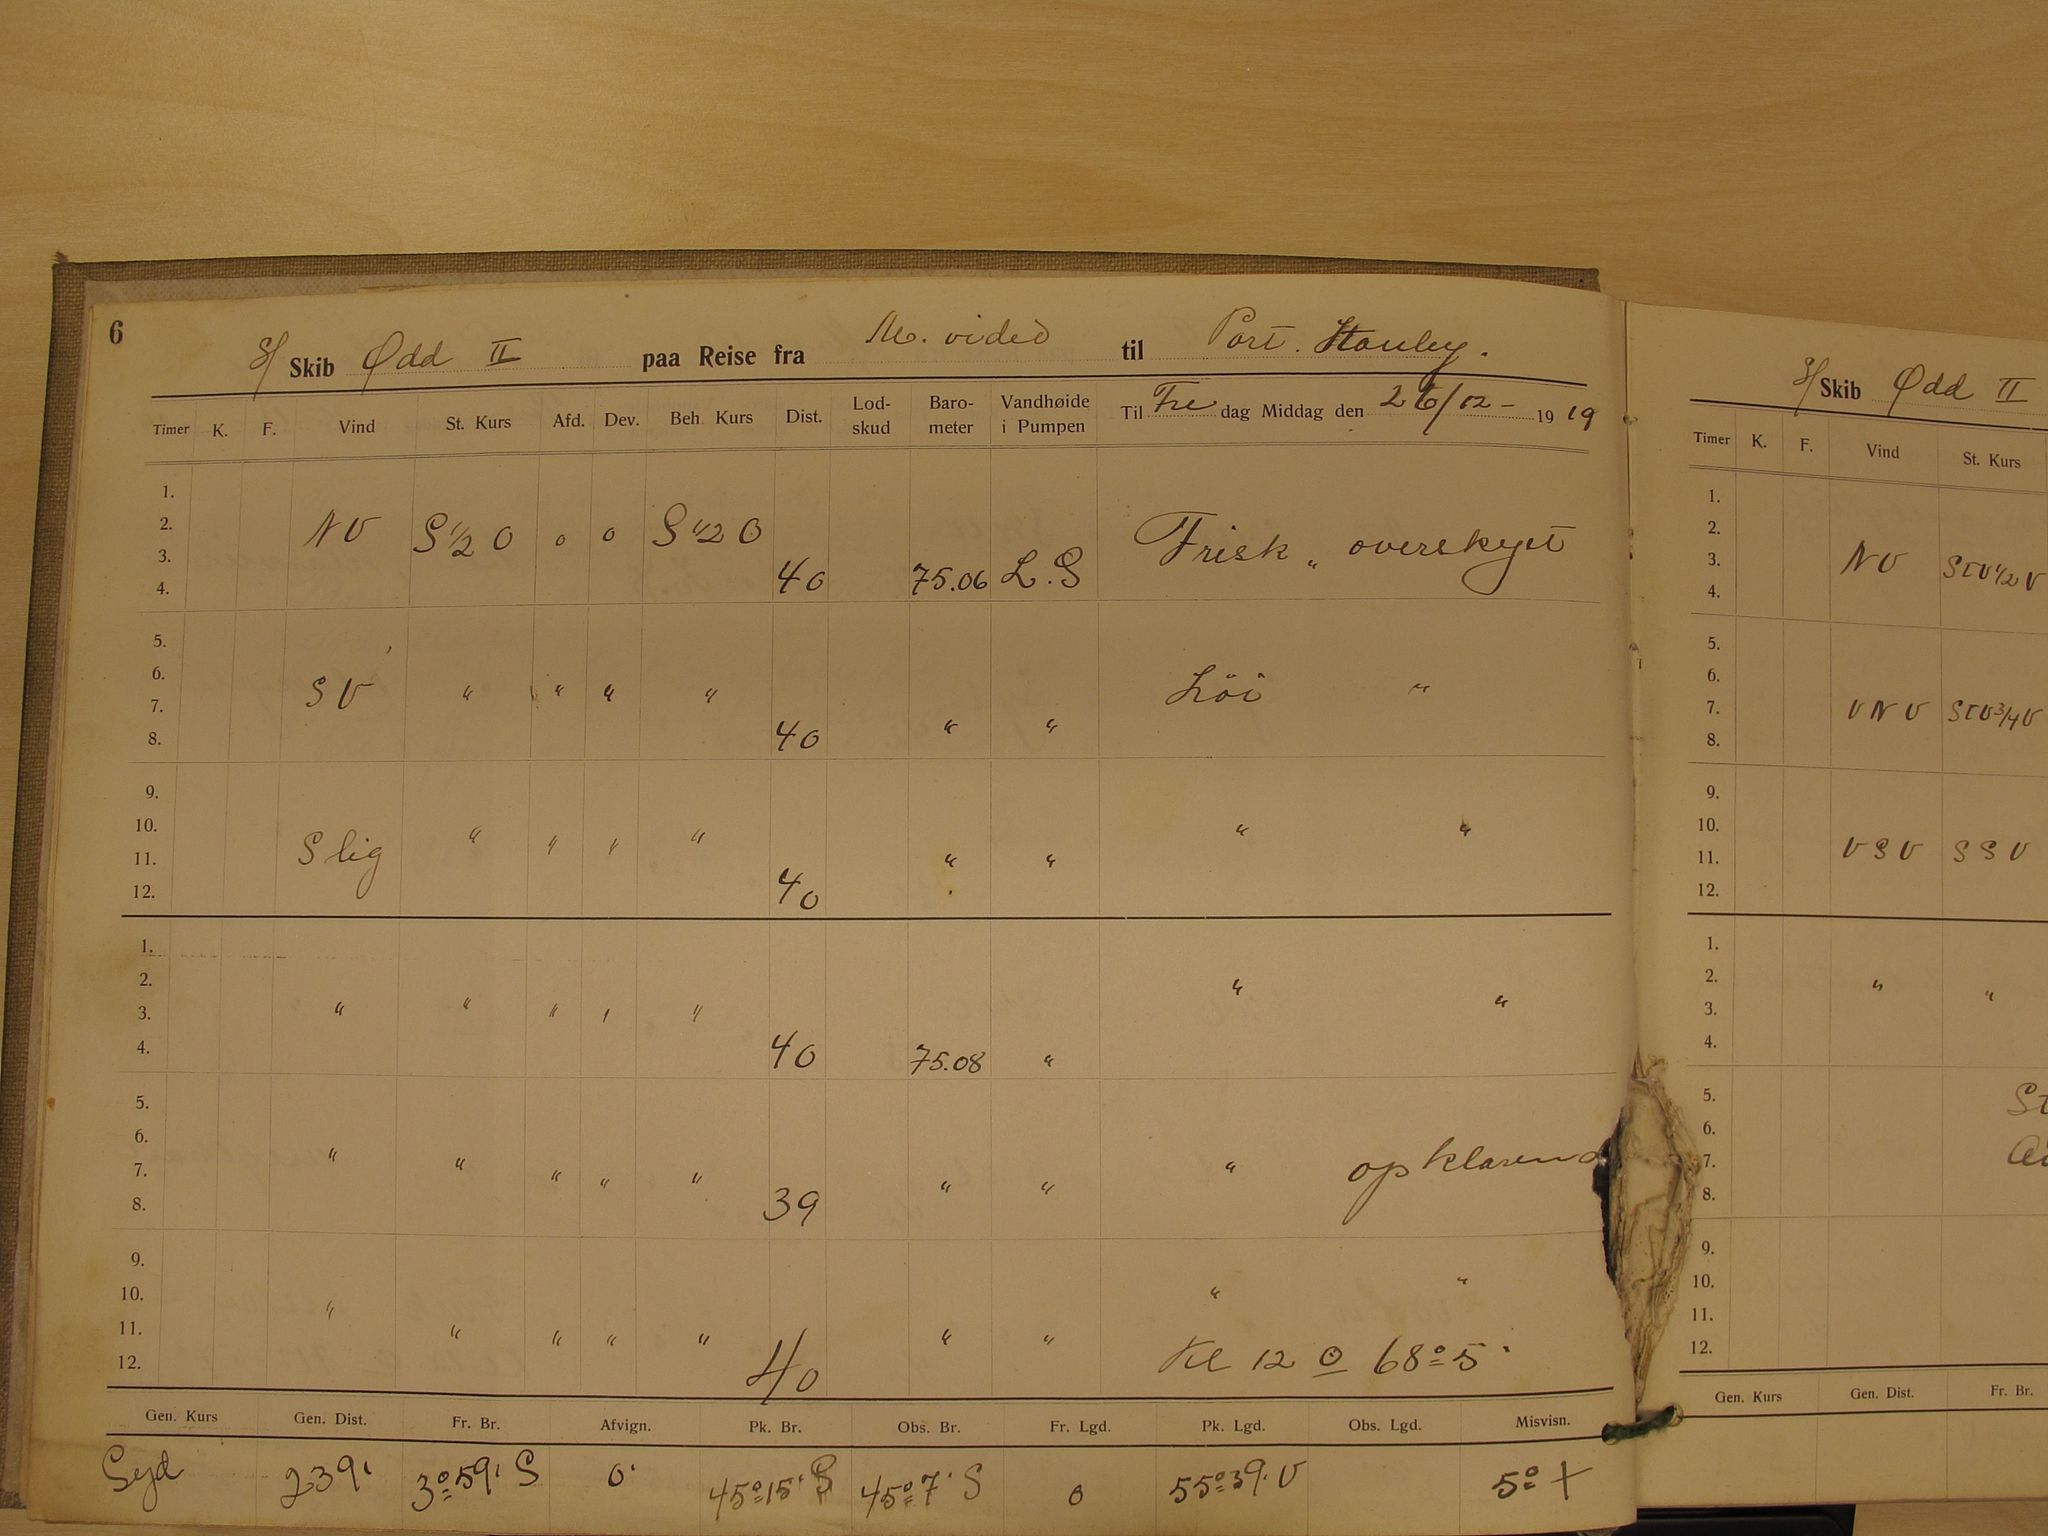 6
S/ Skib Ødd II paa Reise fra M. video til Port. Stanley.
Timer K. F. Vind St. Kurs Afd. Dev. Beh. Kurs Dist. Lod-skud Baro-meter Vandhøide i Pumpen Til Fre dag Middag den 26/12- 1919
1.
2. NV S 1/2 O 0 0 S 1/2 O Frisk „ overskyet
3.
4. 40 75.06 L.S
5.
6. SV " " " " Löi "
7.
8. 40 " "
9.
10. " " " " " "
11. Slig " "
12. 40
1.
2. " "
3. " " " " "
4. 40 75.08 "
5.
6.
7. " " " " " " " " opklarend
8. 39
9.
10. " " "
11. " " " " " "
12. 40 Kl 12 ⊙ 68° 5'
Gen. Kurs Gen. Dist. Fr. Br. Afvign. Pk. Br. Obs. Br. Fr. Lgd. Pk. Lgd. Obs. Lgd. Misvisn.
Syd 239' 3° 59' S 0' 45° 15' S 45° 7' S 0 55° 39' V 5° +
S/ Skib Ødd II
Timer K. F. Vind St. Kurs
1.
2.
3. NV StV 1/2 V
4.
5.
6.
7. VNV StV 3/4 V
8.
9.
10.
11. VSV SSV
12.
1.
2. " "
3.
4.
5.
6.
7.
8.
9.
10.
11.
12.
Gen. Kurs Gen. Dist. Fr. Br.